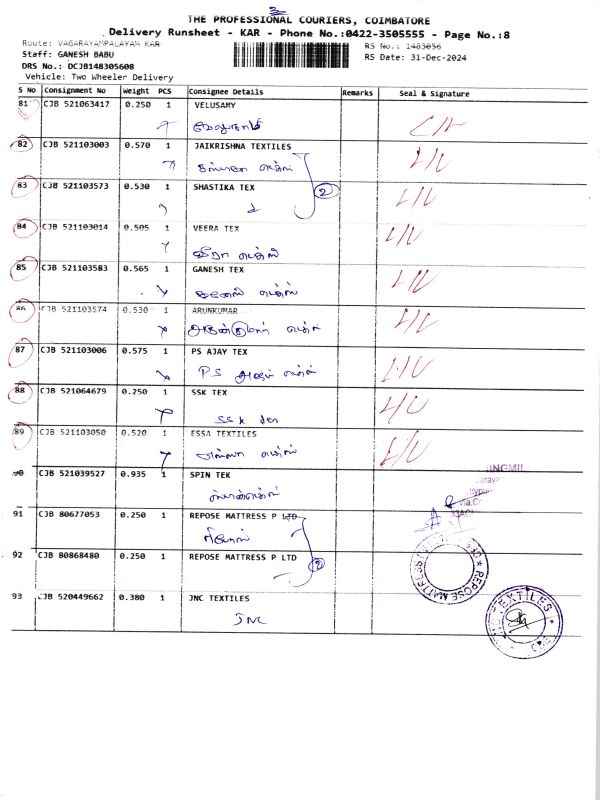 THE PROFESSIONAL COURIERS, COIMBATORE
Delivery Runsheet - KAR - Phone No.:0422-3505555 - Page No.:8
Route: VAGARAYAMPALAYAM KAR
RS No.: 1483056
Staff: GANESH BABU
RS Date: 31-Dec-2024
DRS No.: DCJB148305608
Vehicle: Two Wheeler Delivery
S No Consignment No Weight PCS Consignee Details Remarks Seal & Signature
81 CJB 521063417 0.250 1 VELUSAMY
வேலுசாமி
82 CJB 521103003 0.570 1 JAIKRISHNA TEXTILES
83 CJB 521103573 0.530 1 SHASTIKA TEX
2
84 CJB 521103014 0.505 1 VEERA TEX
வீரா டெக்ஸ்
85 CJB 521103583 0.565 1 GANESH TEX
கனேஸ் டெக்ஸ்
86 CJB 521103574 0.530 1 ARUNKUMAR
அருண்குமார் டெக்ஸ்
87 CJB 521103006 0.575 1 PS AJAY TEX
PS அஜய் டெக்ஸ்
88 CJB 521064679 0.250 1 SSK TEX
SSK
89 CJB 521103050 0.520 1 ESSA TEXTILES
எஸ்ஸா டெக்ஸ்
90 CJB 521039527 0.935 1 SPIN TEK
ஸ்பின்டெக்ஸ்
91 CJB 80677053 0.250 1 REPOSE MATTRESS P LTD
ரிபோஸ்
92 CJB 80868480 0.250 1 REPOSE MATTRESS P LTD
2
REPOSE MATTRESS
93 CJB 520449662 0.380 1 JNC TEXTILES
JNC
TEXTILES